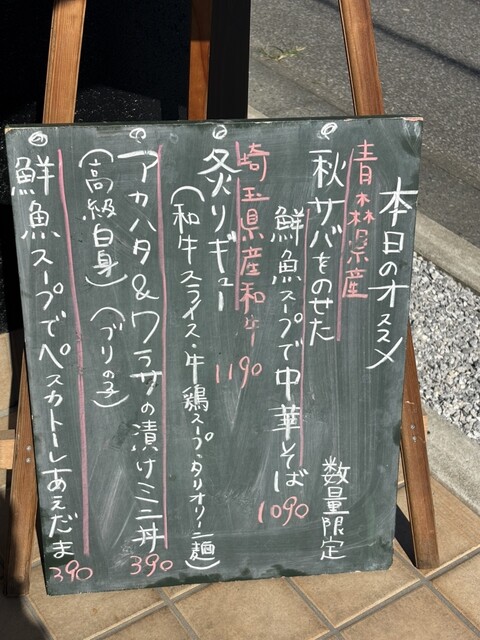 本日のオススメ
青森県産
秋サバをのせた
鮮魚スープで中華そば 1090
数量限定
埼玉県産和牛
炙りギュー 1190
(和牛スライス・牛鶏スープ・タリオリーニ麺)
アカハタ&ワラサの漬けミニ丼 390
(高級白身) (ブリの子)
鮮魚スープでペスカトーレあえだま 390